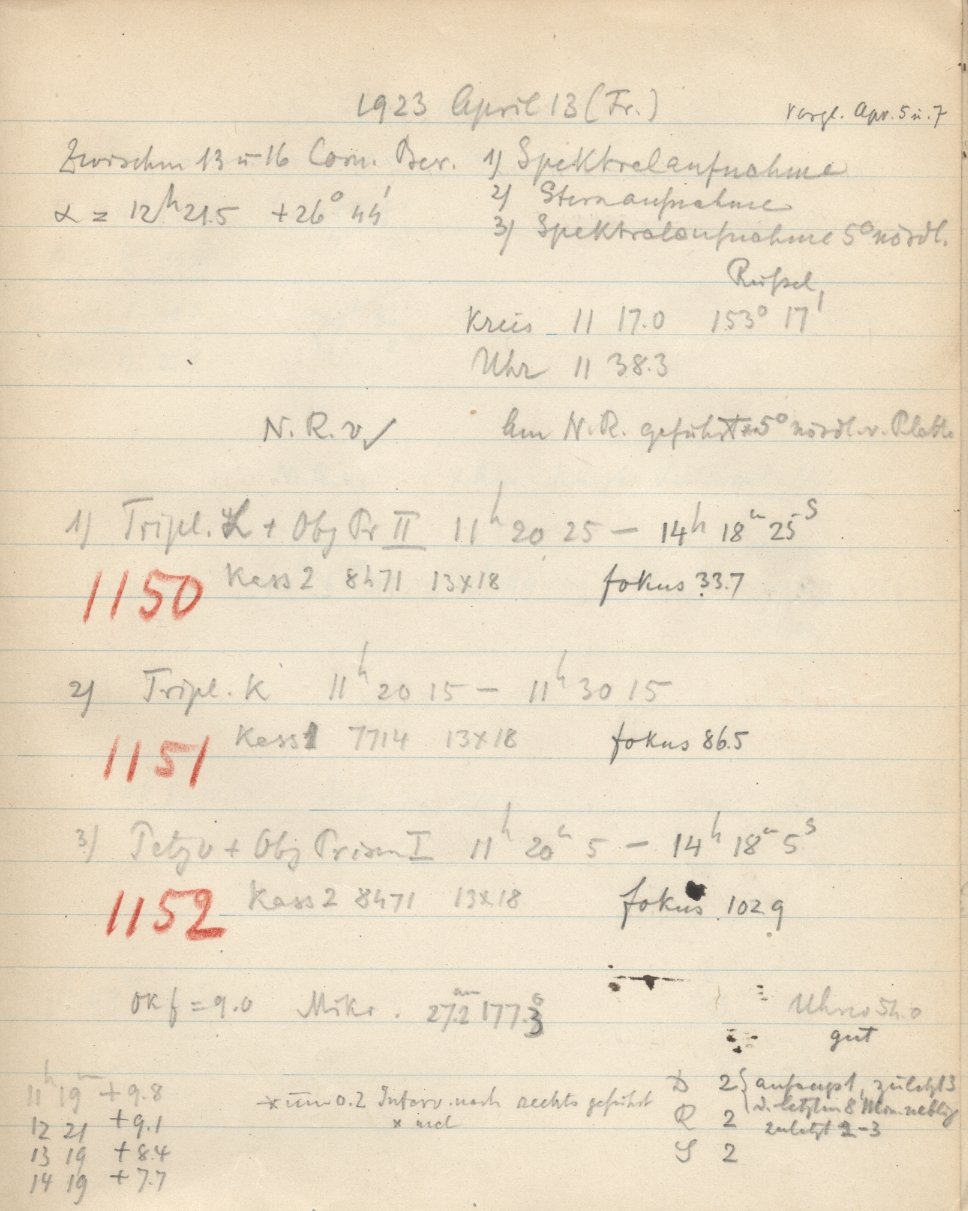 1923 April 13 (Fr.)
vergl. Apr. 5 u. 7
Zwischen 13 u 16 Com. Ber. 1) Spektralaufnahme
α = 12h 21.5 +26° 44' 2) Sternaufnahme
3) Spektralaufnahme 5° nördl.
Kreis 11 17.0 153° 17'
Uhr 11 38.3
N.R. v ✓ Am N.R. geführt 5° nördl. v. Platte
1) Tripl. + Obj Pr II 11h 20 25 — 14h 18m 25s
1150 Kass 2 8471 13x18 fokus 33.7
2) Tripl. K 11h 20 15 — 11h 30 15
1151 Kass 1 7714 13x18 fokus 86.5
3) Petzv + Obj Prism I 11h 20m 5 — 14h 18m 5s
1152 Kass 2 8471 13x18 fokus 102.9
Ok f = 9.0 Mikr. 27.2 177.3
gut
11h 19m +9.8
12 21 +9.1
13 19 +8.4
14 19 +7.7
um 0.2 Interv. nach rechts geführt
D 2 anfangs 1, zuletzt 3
R 2
zuletzt 2-3
S 2